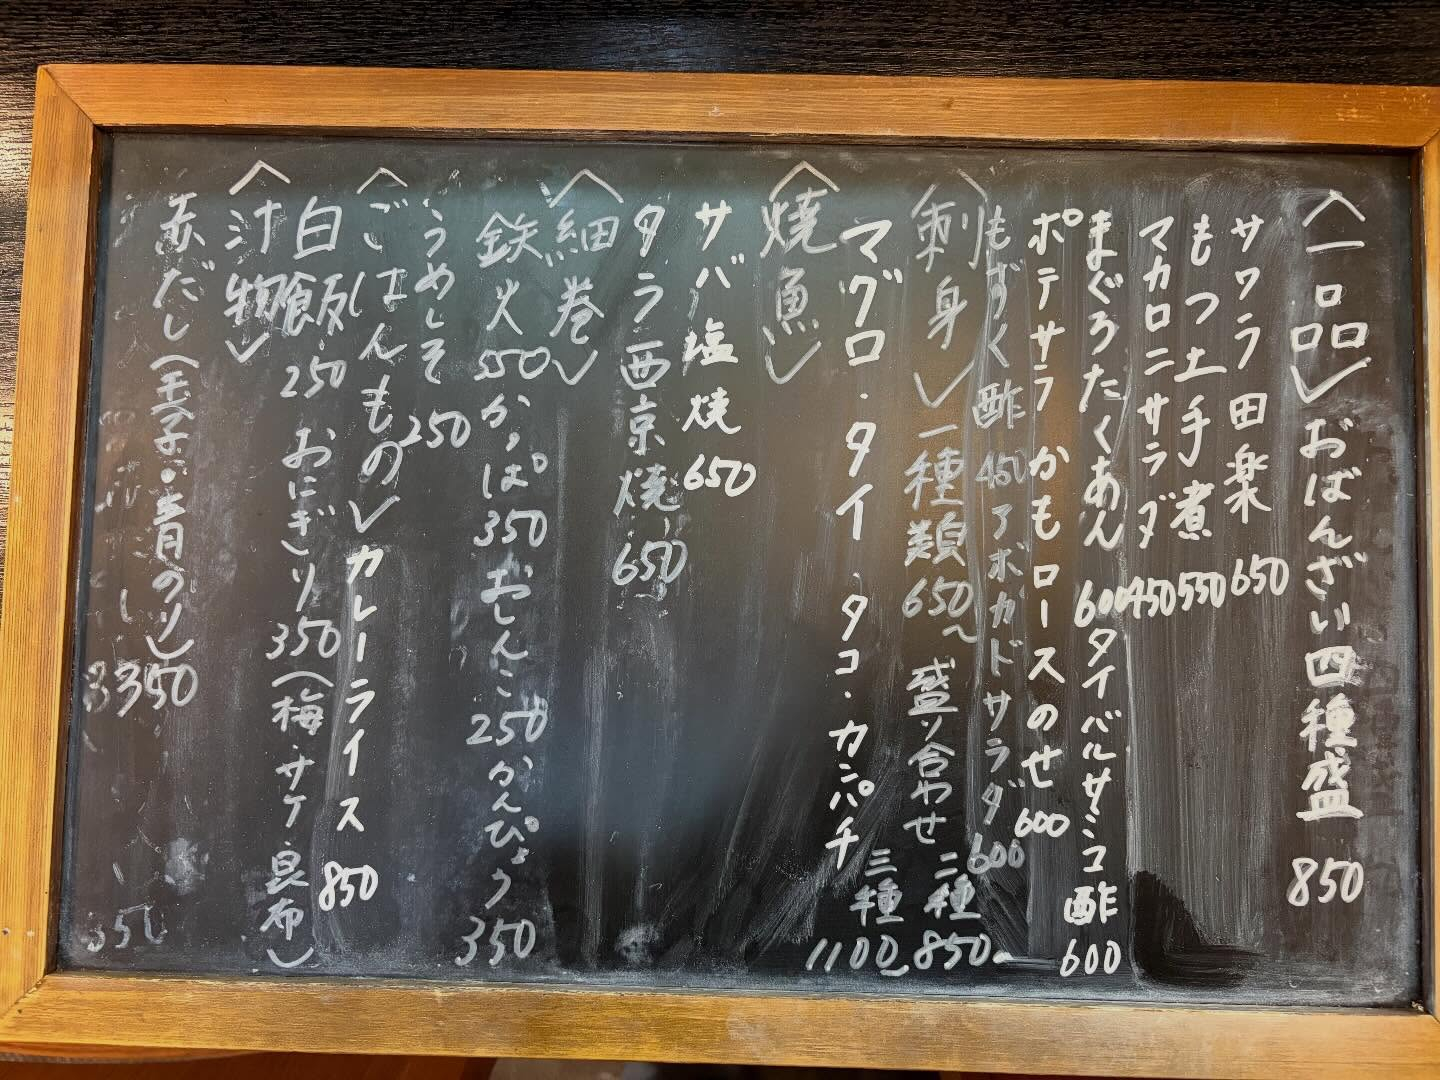 〈一品〉おばんざい四種盛 850
サワラ田楽 650
もつ土手煮 550
マカロニサラダ 450
まぐろたくあん 600 タイバルサミコ酢 600
ポテサラかもロースのせ 600
もずく酢 450 アボカドサラダ 600
〈刺身〉一種類 650～ 盛り合わせ 二種 850～ 三種 1100～
マグロ・タイ・タコ・カンパチ
〈焼魚〉
サバ塩焼 650
タラ西京焼 650
〈細巻〉
鉄火 550 かっぱ 350 おしんこ 250 かんぴょう 350
うめしそ 250
〈ごはんもの〉カレーライス 850
白飯 250 おにぎり 350 (梅・サケ・昆布)
〈汁物〉
赤だし(玉子・青のり) 350